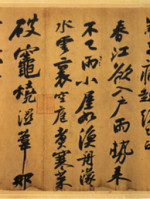 春江欲入戶雨勢來
不已雨小屋如漁舟濛
水雲裏空庖煮寒菜
破竈燒濕葦那